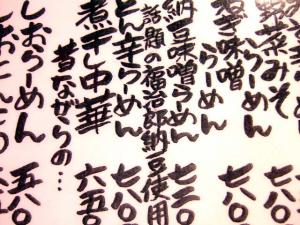 野菜みそ
らーめん
ねぎ味噌
らーめん 七八〇
納豆味噌らーめん 七三〇
話題の福治郎納豆使用
とん辛らーめん 七八〇
煮干し中華 六五〇
昔ながらの…
しおらーめん 五八〇